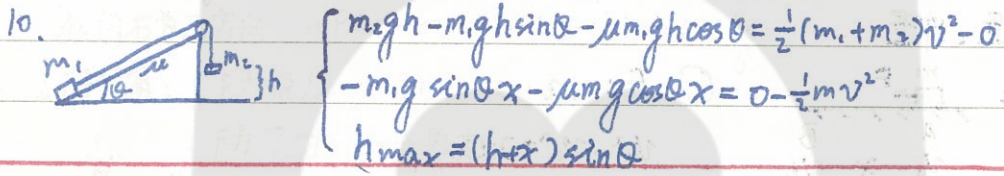 10.
m₁ θ μ m₂ h
m₂gh - m₁ghsinθ - μm₁ghcosθ = ½(m₁+m₂)v² - 0
-m₁g sinθx - μmgcosθx = 0 - ½mv²
hmax = (h+x)sinθ